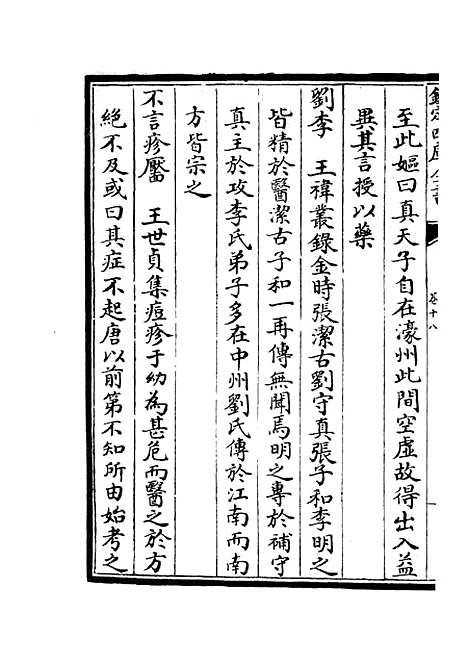 欽定四庫全書
卷十八
至此嫗曰真天子自在濠州此間空虛故得出入益
異其言授以藥
劉李　王禕叢錄金時張潔古劉守真張子和李明之
皆精於醫潔古子和一再傳無聞焉明之專於補守
真主於攻李氏弟子多在中州劉氏傳於江南而南
方皆宗之
不言疹靨　王世貞集痘疹于幼為甚危而醫之於方
絕不及或曰其症不起唐以前第不知所由始考之